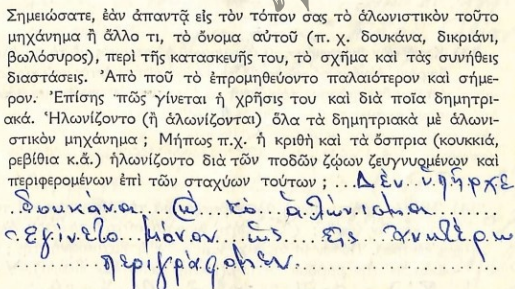 Σημειώσατε, ἐὰν ἀπαντᾷ εἰς τὸν τόπον σας τὸ ἁλωνιστικὸν τοῦτο
μηχάνημα ἢ ἄλλο τι, τὸ ὄνομα αὐτοῦ (π. χ. δουκάνα, δικριάνι,
βωλόσυρος), περὶ τῆς κατασκευῆς του, τὸ σχῆμα καὶ τὰς συνήθεις
διαστάσεις. Ἀπὸ ποῦ τὸ ἐπρομηθεύοντο παλαιότερον καὶ σήμε-
ρον. Ἐπίσης πῶς γίνεται ἡ χρῆσις του καὶ διὰ ποῖα δημητρι-
ακά. Ἡλωνίζοντο (ἢ ἁλωνίζονται) ὅλα τὰ δημητριακὰ μὲ ἁλωνι-
στικὸν μηχάνημα ; Μήπως π.χ. ἡ κριθὴ καὶ τὰ ὄσπρια (κουκκιά,
ρεβίθια κ.ἄ.) ἡλωνίζοντο διὰ τῶν ποδῶν ζῴων ζευγνυομένων καὶ
περιφερομένων ἐπὶ τῶν σταχύων τούτων ; ... Δὲν ὑπῆρχε
δουκάνα τὸ ἁλώνισμα
ἐγίνετο μόνον ὡς εἰς ἀνωτέρω
περιγράφομεν.